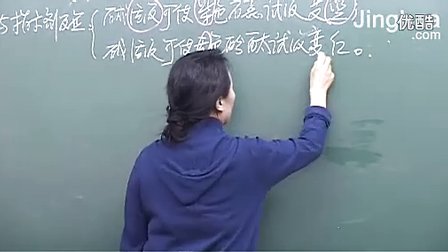 Jing
优酷
与指示剂反应
碱溶液可使紫色石蕊试液变蓝
碱溶液可使无色酚酞试液变红。